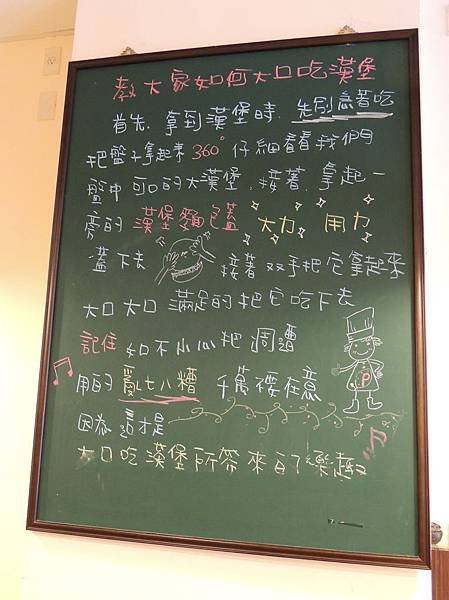 教大家如何大口吃漢堡
首先. 拿到漢堡時. 先別急著吃
把盤子拿起來 360° 仔細看看我們
盤中可口的大漢堡. 接著. 拿起一
旁的 漢堡麵包蓋 大力 用力
蓋下去 接著 双手把它拿起來
大口大口 滿足的把它吃下去
記住 如不小心把 周邊
用的 亂七八糟 千萬褸在意
因為 這才是
大口吃漢堡所帶來的樂趣
P